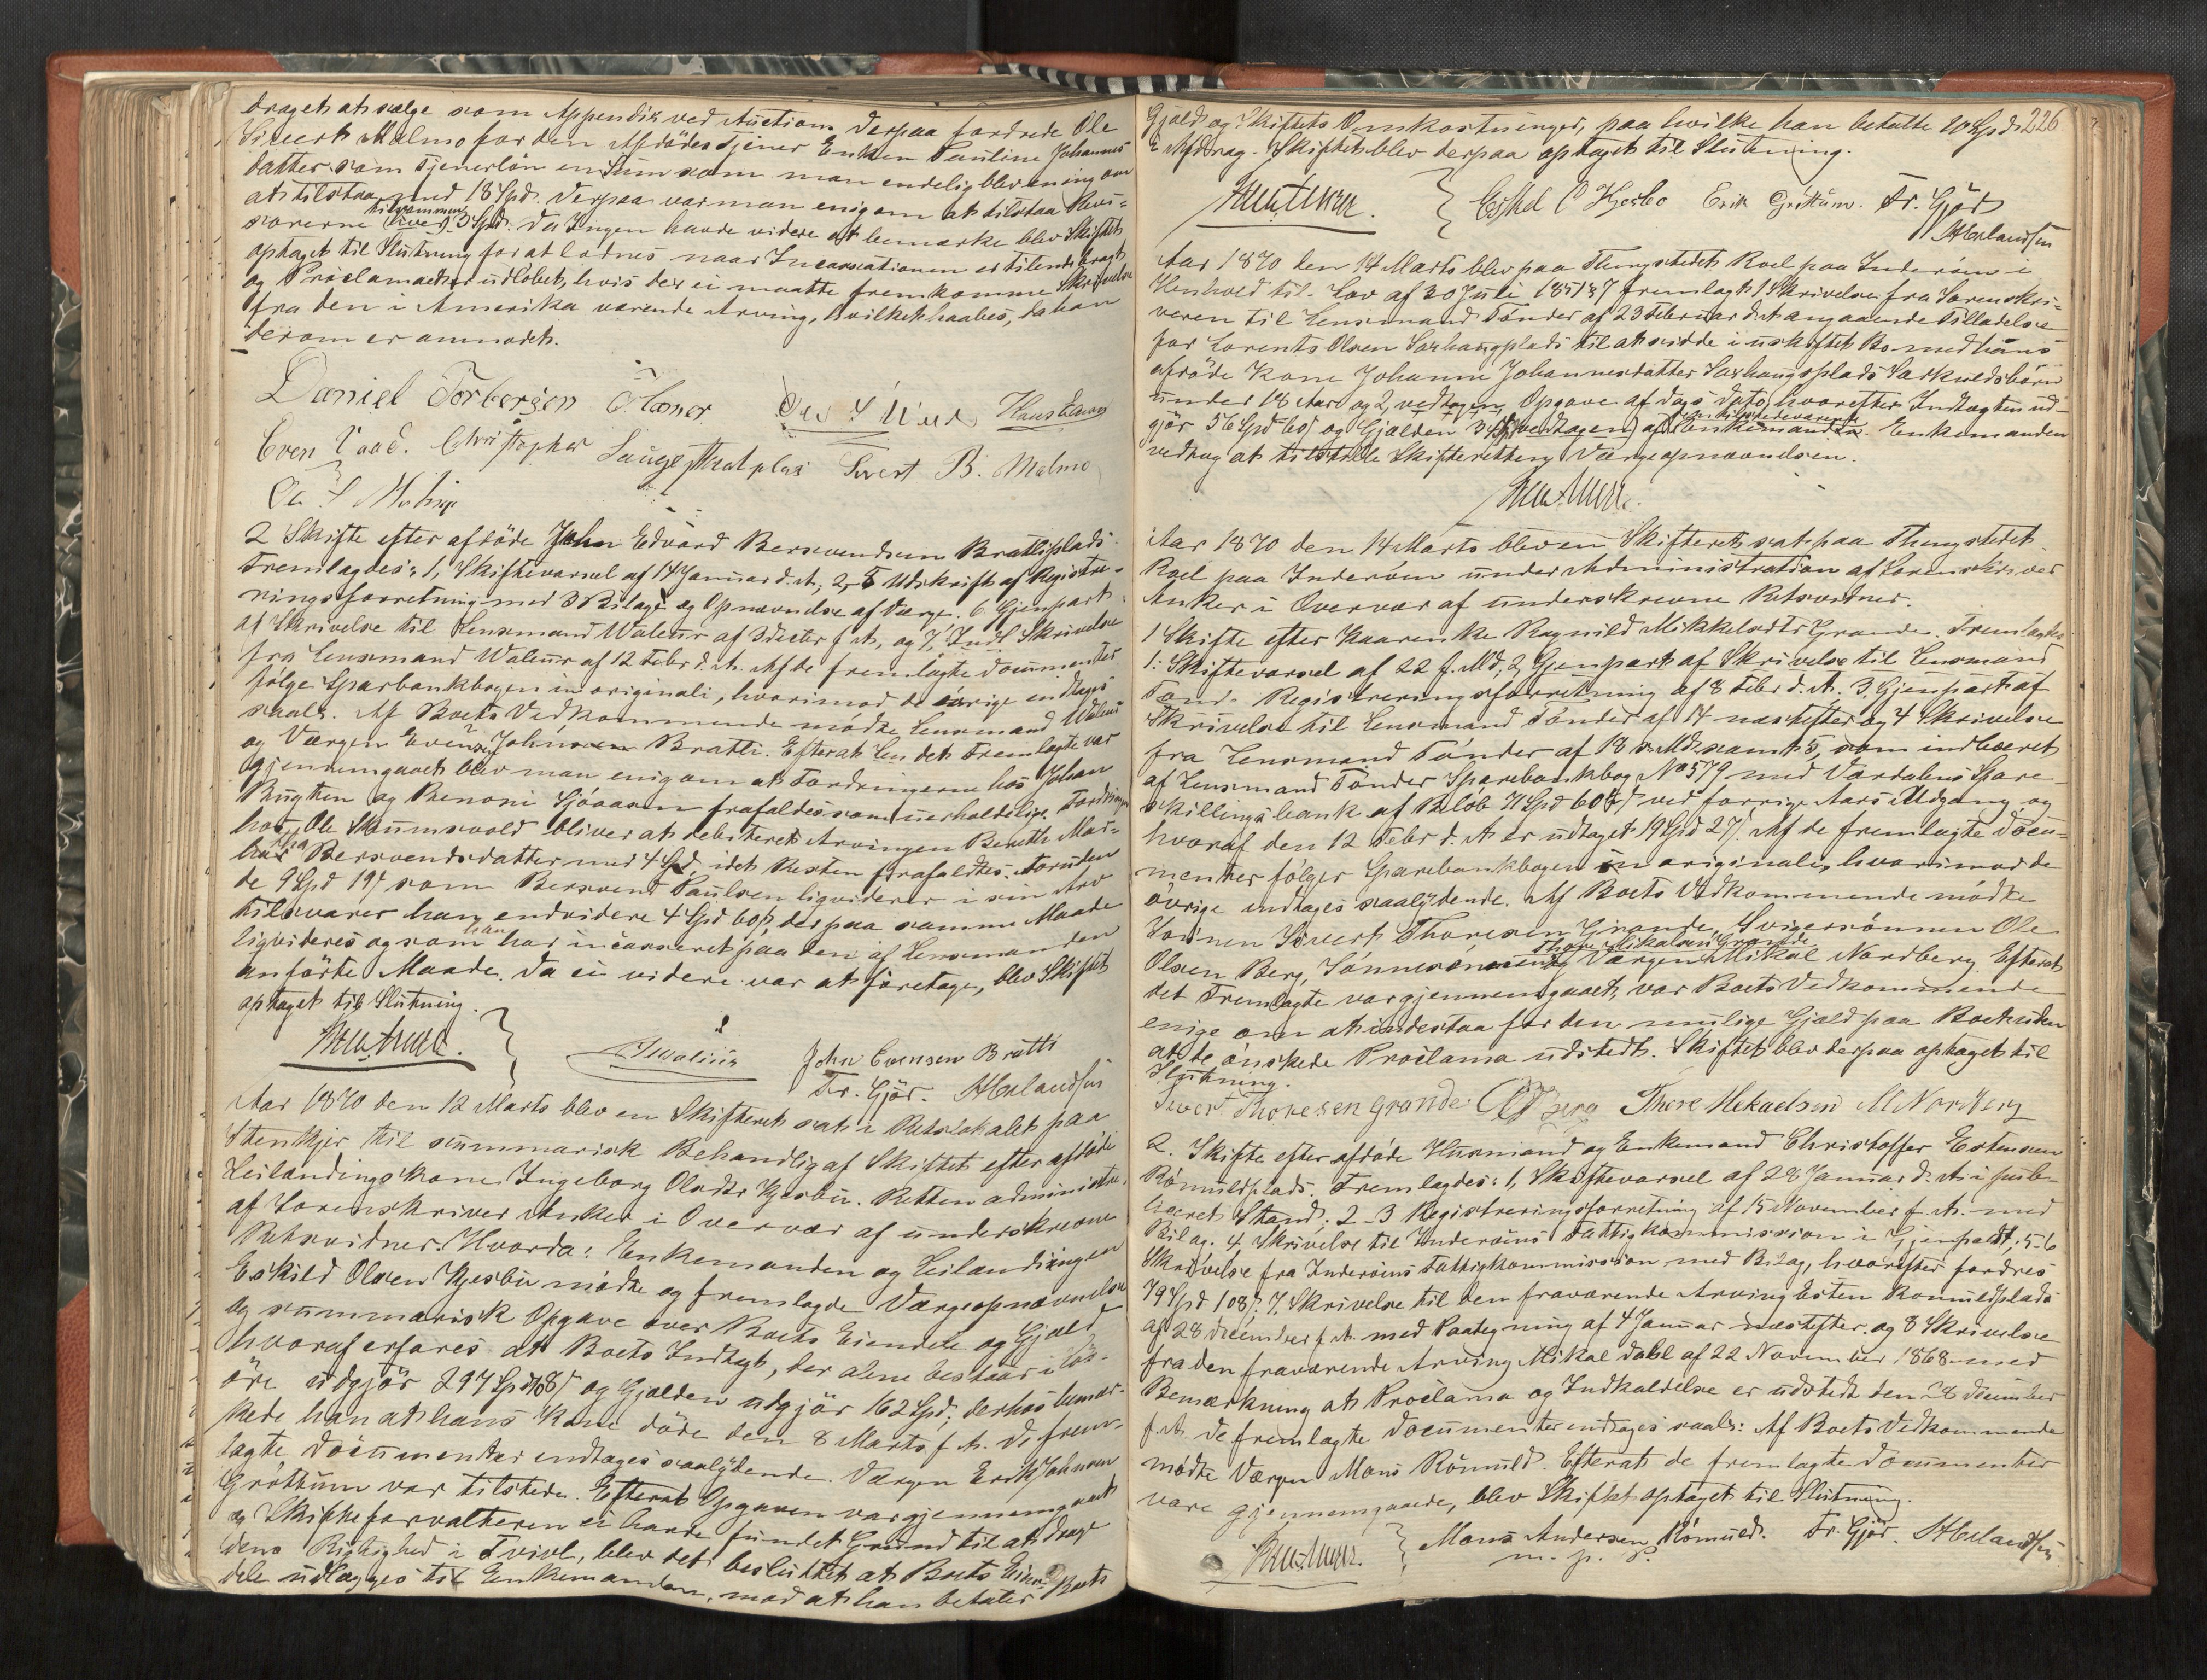 draget at sælge som Appendix ved Auction. Derpaa fordrede Ole
Sivert Malmo for den Afdødes Tjener Enken Pauline Johannes
datter som Tjenerløn en Sum som man endelig blev enig om
at tilstaa med 18 Spd. Derpaa var man enig om at tilstaa Revi-
sorerne tilsammen 3 Spd. Da Ingen havde videre at bemærke blev Skiftet
optaget til Slutning for at lodnes naar Incassationen er tilendebragt
og Proclamaet er udløbet, hvis der ei maatte fremkomme Skrivelse
fra den i Amerika værende Arving, hvilket haabes, da han
derom er anmodet.
Daniel Torbersen
Even Vaad. Christopher Sivert B. Malmo
2 Skifte efter afdøde John Edvard Bersvendsen Bratliplads.
Fremlagdes: 1, Skiftevarsel af 14 Januar d. A., 2-5 Udskrift af Registre-
ringsforretning med 3 Bilage og Opnævnelse af Værge. 6 Gjenpart
af Skrivelse til Lensmand Waleur af 3 decbr f. A., og 7, Indl Skrivelse
fra Lensmand Waleur af 12 Febr d. A. Af de fremlagte Documenter
følge Sparbankbogen in originali, hvorimod de øvrige indtages
saal. Af Boets Vedkommende mødte Lensmand Waleur
og Værgen Johnsen Bratli. Efterat det Fremlagte var
gjennemgaaet blev man enig om at Fordringerne hos Johan
Rugtten og Benoni Sjøaasen frafaldes som uerholdelige. Fordringen
hos Ole Skaumsvold bliver at debiteret Arvingen Bereth Mar-
tha Bersvendsdatter med 4 Spd, idet Resten frafaldtes. Foruden
de 9 Spd 19 s som Bersvend Paulsen ligviderer i sin Arv
tilsvarer han endvidere 4 Spd 60 s, der paa samme Maade
ligvideres og som han har incasseret paa den af Lensmanden
anførte Maade. Da ei videre var at foretage, blev Skiftet
optaget til Slutning.
John Evensen Bratli
Fr. Gjør. Herlandsen
Aar 1870 den 12 Marts blev en Skifteret sat i Retslokalet paa
Stenkjer til summarisk Behandlig af Skiftet efter afdøde
Leilændingskone Ingeborg Olsdtr Hjesbu. Retten administre-
af Sorenskriver Anker i Overvær af underskrevne
Retsvidner. Hvorda: Enkemanden og Leilændingen
Eskild Olsen Hjesbu mødte og fremlagde Værgeopnævnelse
og summarisk Opgave over Boets Eiendele og Gjæld
hvoraf erfares at Boets Indtægt, der alene bestaar i Løs-
øre udgjør 297 Spd 108 s og Gjælden udgjør 162 Spd; derhos bemær-
kede han at hans Kone døde den 8 Marts f. A. De frem-
lagte Documenter indtages saalydende. Værgen Erik Johnsen
Grøttum var tilstede. Efterat Opgaven var gjennemgaaet
og Skifteforvalteren ei havde fundet Grund til at drage
dens Rigtighed i Tvivl, blev det besluttet at Boets Eien-
dele udlægges til Enkemanden, mod at han betaler Boets
226
Gjæld og Skiftets Omkostninger, paa hvilke han betalte 10 Spd
i Afdrag. Skiftet blev derpaa optaget til Slutning.
Eskel O Hjesbo Erik Gröttum. Fr. Gjør
Herlandsen
Aar 1870 den 14 Marts blev paa Thingstedet Roel paa Inderøen i
Henhold til Lov af 30 Juli 1851 § 7 fremlagt 1 Skrivelse fra Sorenskri-
veren til Lensmand Tønder af 23 Februar d. A angaaende Tilladelse
for Lorents Olsen Saxhaugplads til at sidde i uskiftet Bo med hans
afdøde Kone Johanne Johannesdatter Saxhaugsplads Særkuldsbørn
under 18 Aar og 2, vedtagen Opgave af Dags Dato, hvorefter Indtægten ud-
gjør 56 Spd 60 s og Gjælden 3 Spd vedtagen af den tilstedeværende Enkemanden. Enkemanden
vedtog at tilstille Skifteretten Værgeopnævnelsen.
Aar 1870 den 14 Marts blev en Skifteret sat paa Thingstedet
Roel paa Inderøen under Administration af Sorenskriver
Anker i Overvær af underskrevne Retsvidner.
1 Skifte efter Kaarenke Ragnild Mikkelsdtr Grande. Fremlagdes
1: Skiftevarsel af 22 f. Md, 2 Gjenpart af Skrivelse til Lensmand
Tønd. Registreringsforretning af 8 Febr d. A. 3. Gjenpart af
Skrivelse til Lensmand Tønder af 14 næstefter og 4 Skrivelse
fra Lensmand Tønder af 18 s. Md. samt 5, som indleveret
af Lensmand Tønder Sparebankbog No 579 med Værdalens Spare-
skillingsbank af Beløb 71 Spd 60 s ved forrige Aars Udgang og
hvoraf den 12 Febr d. A er udtaget 19 Spd 27 s. Af de fremlagte Docu-
menter følger Sparebankbogen in originali, hvorimod de
øvrige indtages saalydende. Af Boets Vedkommende mødte
Sønnen Sivert Thoresen Grande, Svigersønnen Ole
Olsen Berg, Sønnesønnen Thore Mikalsen Grande og Værgen Mikal Nordberg. Efterat
det Fremlagte var gjennemgaaet, var Boets Vedkommende
enige om at indestaa for den mulige Gjæld paa Boet uden
at de ønskede Proclama udstedt. Skiftet blev derpaa optaget til
Slutning.
Sivert Thoresen Grande. OOBerg Thore Mekaelsen MNorberg
2. Skifte efter afdøde Husmand og Enkemand Christoffer Estensen
Rømuldplads. Fremlagdes: 1, Skiftevarsel af 28 Januar d. A. i pub-
liceret Stand; 2-3 Registreringsforretning af 15 November f. A. med
Bilag. 4 Skrivelse til Inderøens Fattigkommission i Gjenpart; 5-6
Skrivelse fra Inderøens Fattigkommission med Bilag, hvorefter fordres
79 Spd 108 s. 7. Skrivelse til den fraværende Arving Esten Romuldplads
af 28 December f. A. med Paategning af 4 Januar næstefter, og 8 Skrivelse
fra den fraværende Arving Mikal Dahl af 22 November 1868 med
Bemærkning at Proclama og Indkaldelse er udstedt den 28 December
f. A. De fremlagte Documenter indtages saal: Af Boets Vedkommende
mødte Værgen Mons Rømuld. Efterat de fremlagte Documenter
vare gjennemgaaede, blev Skiftet optaget til Slutning.
Mons Andersen Rømuld. Fr. Gjør. Herlandsen
m. p. P.